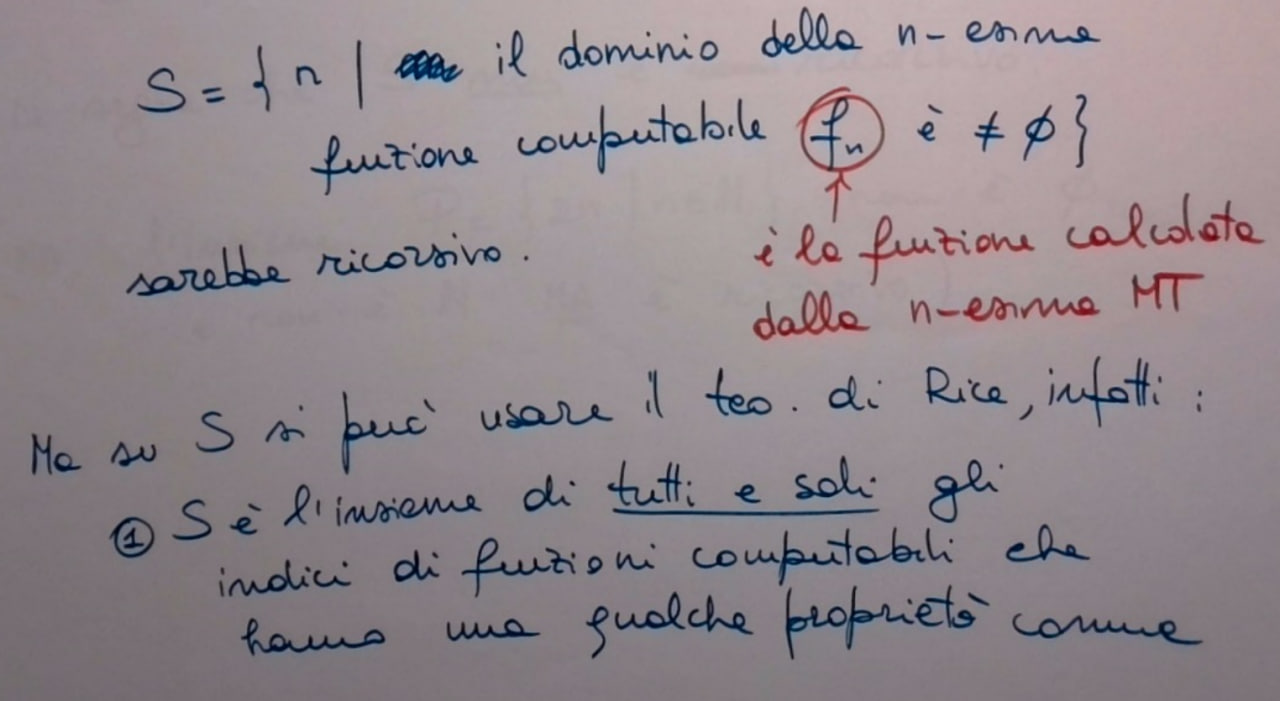 S = { n | il dominio della n-esima
funzione computabile fₙ è ≠ ∅ }
sarebbe ricorsivo.
è la funzione calcolata
dalla n-esima MT
Ma su S si può usare il teo. di Rice, infatti:
① S è l'insieme di tutti e soli gli
indici di funzioni computabili che
hanno una qualche proprietà comune